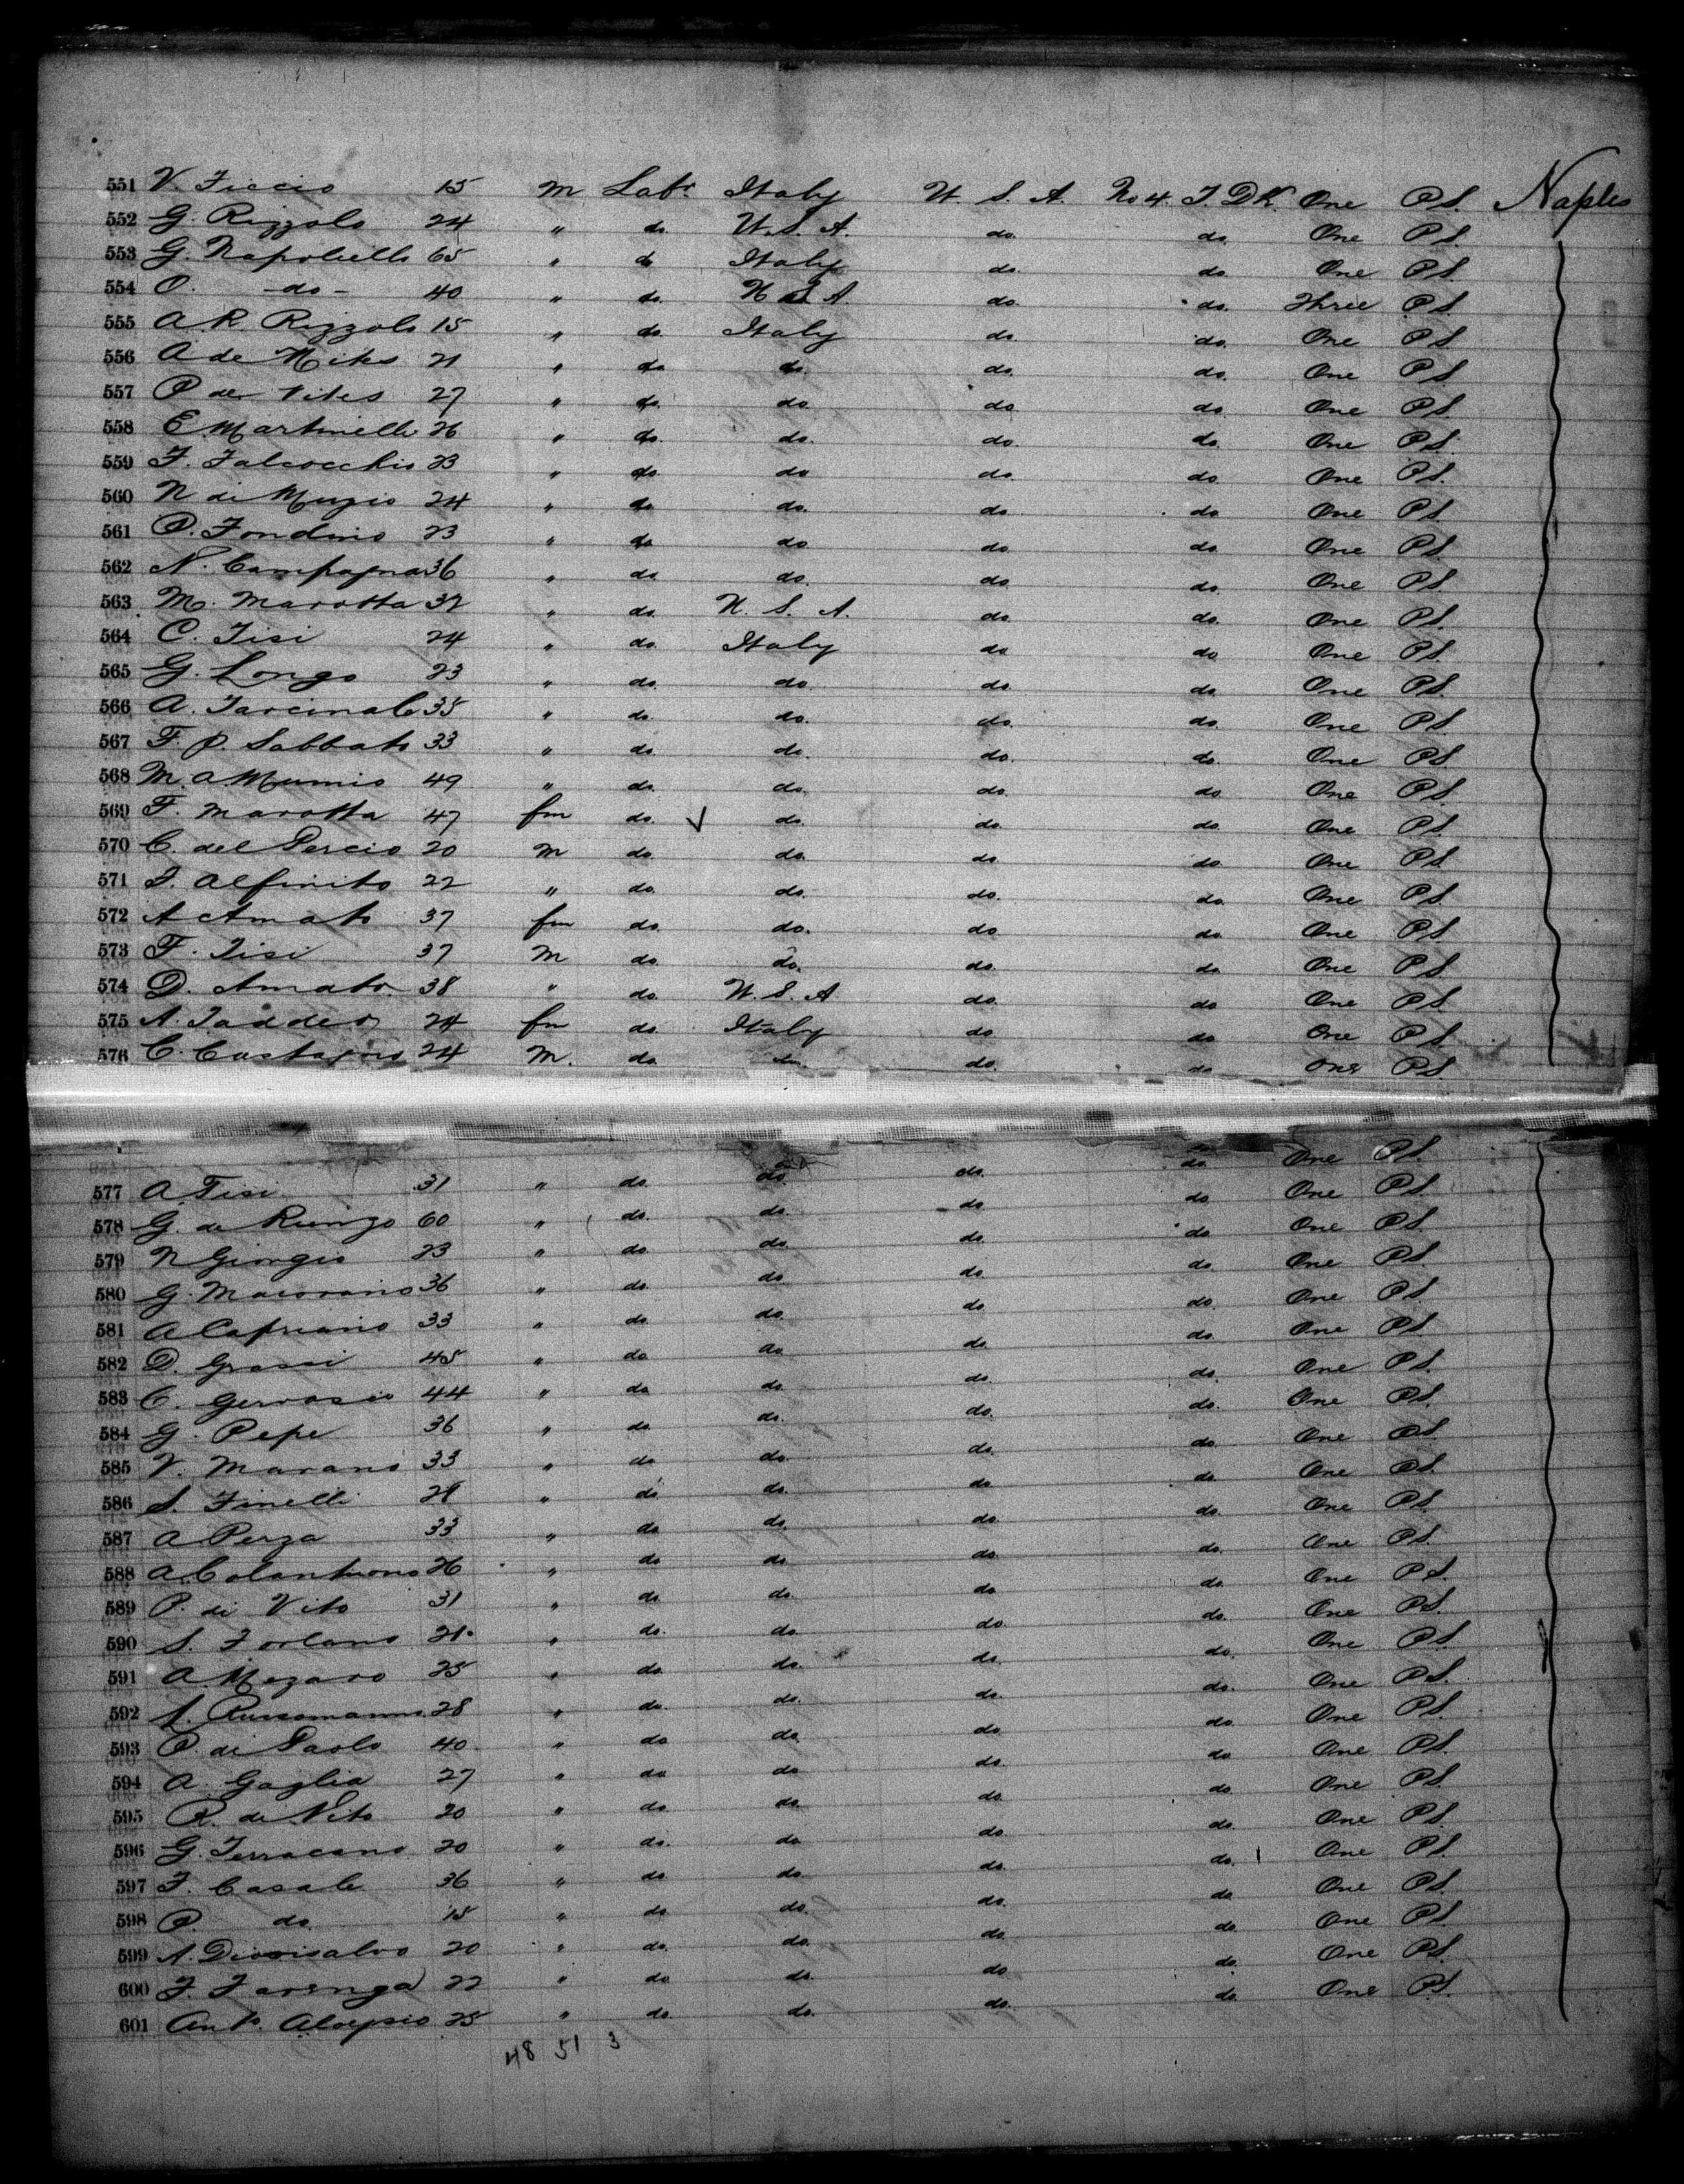 551 V. Ficcio 15 m Labr Italy U. S. A. No 4. T. DK. One P.S. Naples
552 G. Rizzolo 24 " do U. S. A. do. do. One P.S.
553 G. Napoliello 65 " do Italy do. do One P.S.
554 O. -do- 40 " do. U S A do. do. Three P.S.
555 A. R. Rizzolo 15 " do. Italy do do. One P.S.
556 A de 21 " do. do. do. do. One P.S.
557 P de Vites 27 " do. do. do do One P.S.
558 E Martinelli 26 " do. do. do. do. One P.S.
559 F. Falcocchio 23 " do. do do. do. One P.S.
560 N di Muzio 24 " do. do. do do One P.S.
561 P. Fondino 23 " do do do. do. One P.S.
562 N. Campagna 36 " do. do. do. do. One P.S.
563 M. Marotta 32 " do. U. S. A. do. do. One P.S.
564 C. Tisi 24 " do. Italy do do One P.S.
565 G. Longo 23 " do. do. do. do. One P.S.
566 A. 35 " do. do. do. do. One P.S.
567 F. P. Sabbato 33 " do. do. do. do. One P.S.
568 M. A. Mumio 49 " do. do. do. do One P.S.
569 F. Marotta 47 fm do. ✓ do. do. do. One P.S.
570 C. del Percio 20 m do do. do do. One P.S.
571 F. Alfinito 22 " do. do. do. do. One P.S.
572 A Amato 37 fm do. do. do do One P.S.
573 F. Tisi 37 m do. do. do. do One P.S.
574 D. Amato. 38 " do. U. S. A do. do One P.S.
575 A. Taddeo 24 fm do. Italy do do One P.S.
576 C. Castagno 24 M. do do. do. do One P.S.
do. One P.S.
577 A. Tisi 31 " do. do. do. do One P.S.
578 G. de Rienzo 60 " do. do. do do One P.S.
579 N Giorgio 23 " do do do. do. One P.S.
580 G. Maiorano 36 " do. do do do. One P.S.
581 A Capriano 33 " do. do. do do. One P.S.
582 D. Grassi 45 " do do do. do. One P.S.
583 C. Gervasio 44 " do do. do. do. One P.S.
584 G. Pepe 36 " do. do. do. do. One P.S.
585 V. Marano 33 " do do. do. do. One P.S.
586 S. Finelli 28 " do do. do do. One P.S.
587 A Perza 33 " do do. do do. One P.S.
588 A. Colantuono 26 " do do do. do One P.S.
589 P. di Vito 31 " do. do. do do. One P.S.
590 S. Forlano 21 " do. do. do. do. One P.S.
591 A. Mezaro 25 " do do. do. do. One P.S.
592 A. Russomanno 28 " do. do. do. do. One P.S.
593 P. di Paolo 40 " do do. do. do One P.S.
594 A. Gaglia 27 " do do do. do. One P.S.
595 R. de Vito 20 " do. do. do. do. One P.S.
596 G. Terracano 20 " do. do do. do. One P.S.
597 F. Casale 36 " do do. do. do One P.S.
598 P. do. 15 " do do. do. do. One P.S.
599 A. Diovisalvo 20 " do. do. do. do. One P.S.
600 F. Farenga 22 " do do. do do. One P.S.
601 Anto. Aloysio 25 " do. do. do.
48 51 3